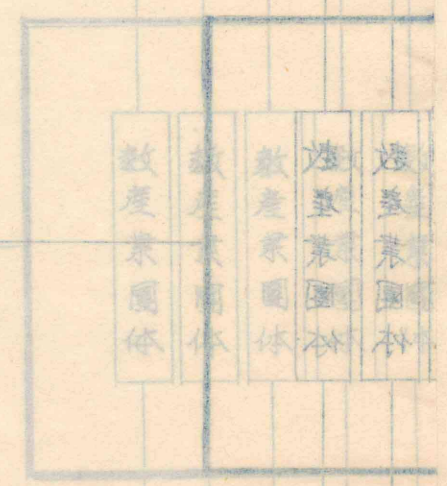 数産業團体
数産業團体
数産業團体
数産業團体
数産業團体